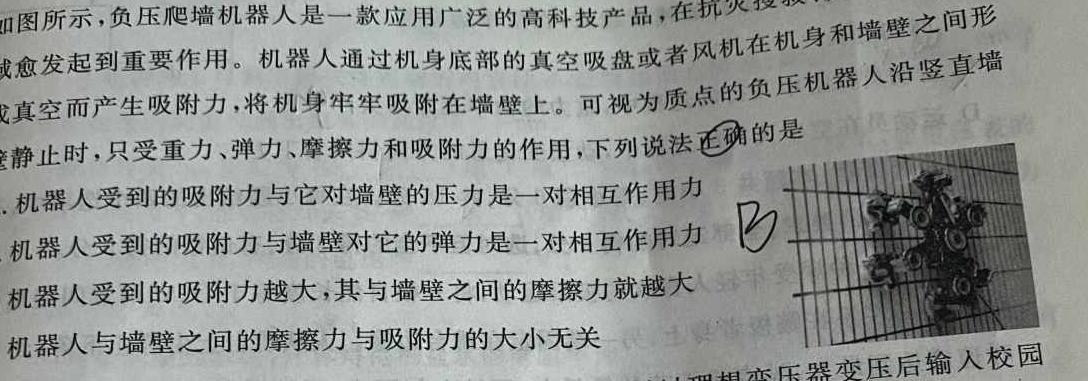 如图所示,负压爬墙机器人是一款应用广泛的高科技产品,在抗灾搜救
域愈发起到重要作用。机器人通过机身底部的真空吸盘或者风机在机身和墙壁之间形
成真空而产生吸附力,将机身牢牢吸附在墙壁上。可视为质点的负压机器人沿竖直墙
壁静止时,只受重力、弹力、摩擦力和吸附力的作用,下列说法正确的是
机器人受到的吸附力与它对墙壁的压力是一对相互作用力
机器人受到的吸附力与墙壁对它的弹力是一对相互作用力
B
机器人受到的吸附力越大,其与墙壁之间的摩擦力就越大
机器人与墙壁之间的摩擦力与吸附力的大小无关
理想变压器变压后输入校园